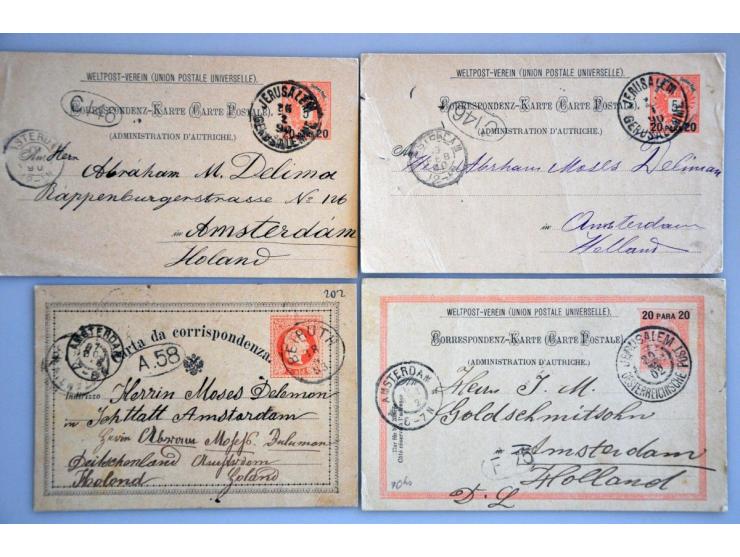 WELTPOST-VEREIN (UNION POSTALE UNIVERSELLE).
CORRESPONDENZ-KARTE (CARTE POSTALE).
(ADMINISTRATION D'AUTRICHE).
JERUSALEM
26
2
90
GERUSALEMME
5
20
AMSTERDAM
An Hern
Abraham M. Delima
Rappenburgerstrasse No 126
in Amsterdám
Holand
WELTPOST-VEREIN (UNION POSTALE UNIVERSELLE).
CORRESPONDENZ-KARTE (CARTE POSTALE).
(ADMINISTRATION D'AUTRICHE).
JERUSALEM
5
20 PARA 20
146
AMSTERDAM
An
Abrham Moses Deliman
in Amsterdam
Holland
202
Carta da corrispondenza.
AMSTERDAM
A.58
BEYRUTH
83
Indirizzo
Herrin Moses Delemon
in Schtlatt Amsterdam
Herin Abram Moses Duluman
Deitschenland Amsterdam
Holond Holand
WELTPOST-VEREIN (UNION POSTALE UNIVERSELLE).
20 PARA 20
CORRESPONDENZ-KARTE (CARTE POSTALE).
(ADMINISTRATION D'AUTRICHE).
JERUSALEM
OESTERREICHISCHE POST
AMSTERDAM
6-7N
Herrn J. M.
Goldschmitsohn
in Amsterdam
F 75
Holland
D. L